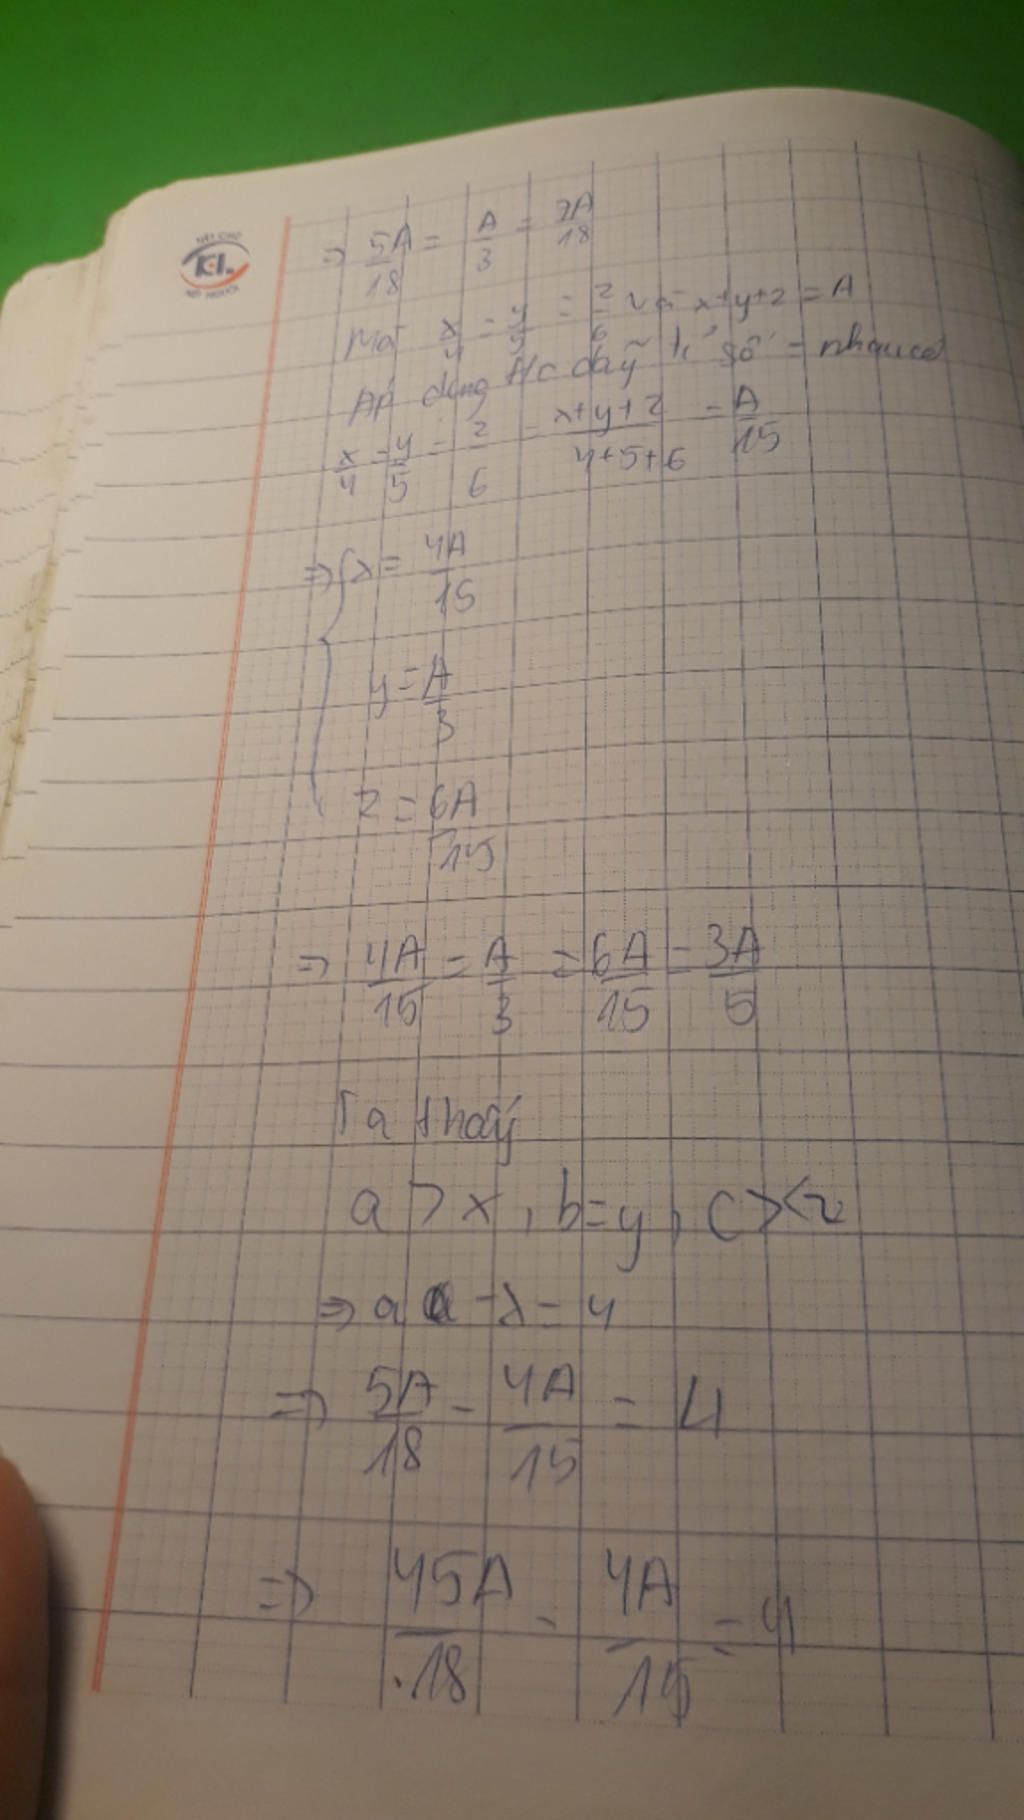 NÉT CHỮ
K.L.
NẾT NGƯỜI
=> 5A/18 = A/3 = 7A/18
Mà x/4 = y/5 = z/6 và x+y+z = A
Áp dụng t/c dãy tỉ số = nhau có
x/4 = y/5 = z/6 = x+y+z/4+5+6 = A/15
=> { x = 4A/15
y = A/3
z = 6A/15
=> 4A/15 = A/3 = 6A/15 = 3A/5
Ta thấy
a > x, b = y, c > < z
=> a - x = 4
=> 5A/18 - 4A/15 = 4
=> 45A/.18 - 4A/15 = 4